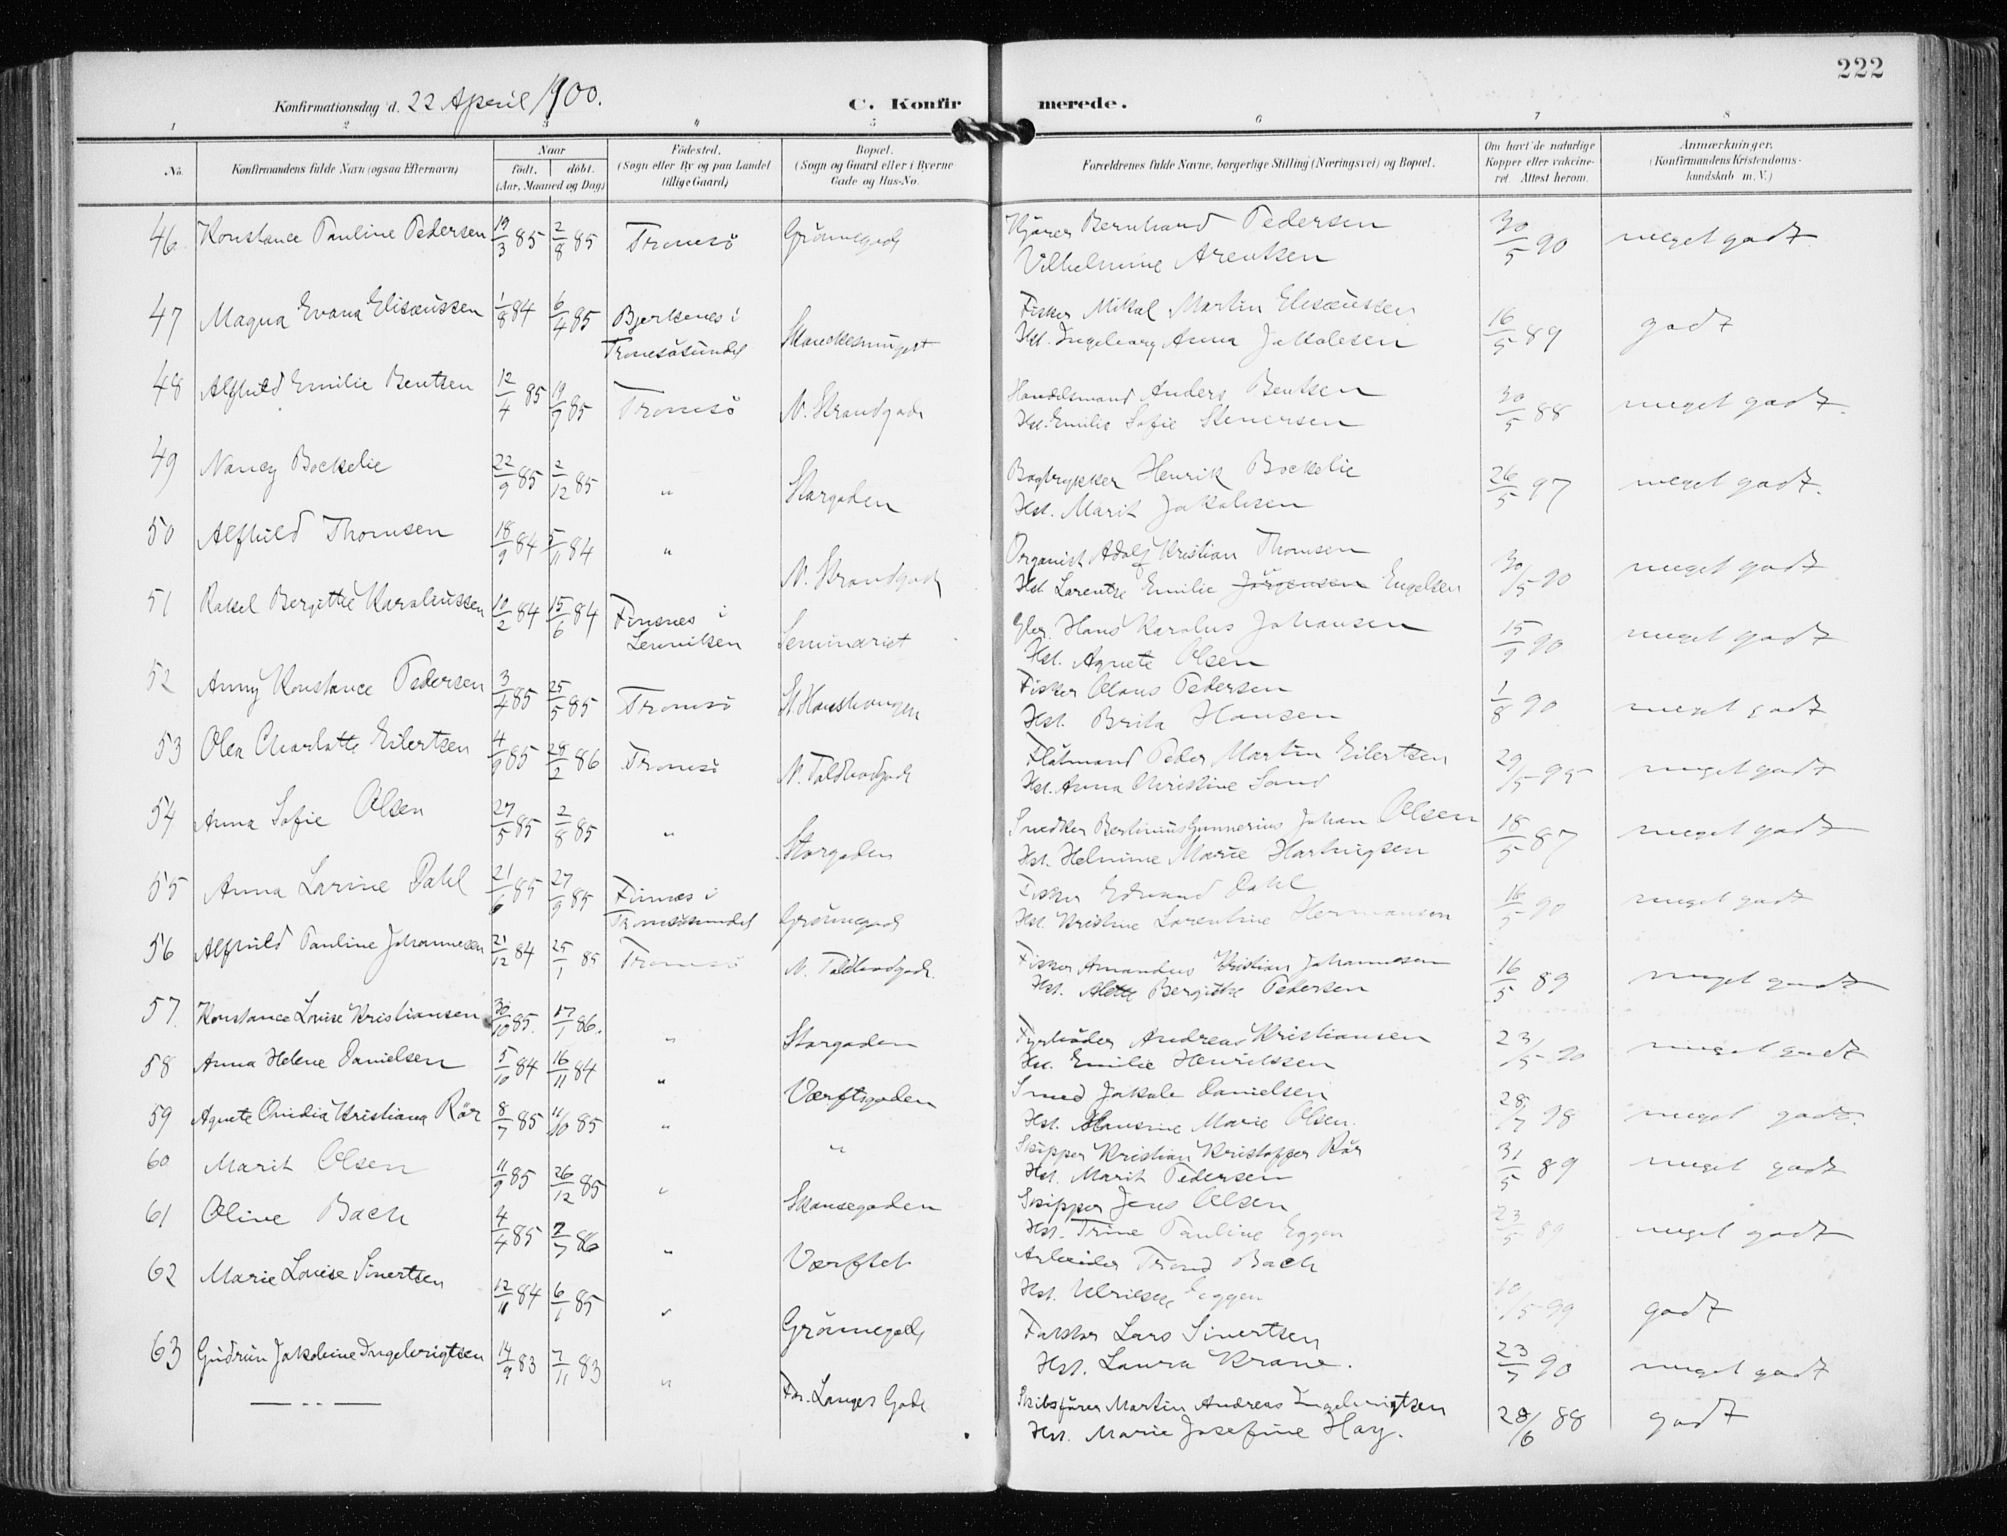 222
Konfirmationsdag d. 22 April 1900.
C. Konfirmerede.
1 2 3 4 5 6 7 8
No. Konfirmandens fulde Navn (ogsaa Efternavn) Naar født, døbt. (Aar, Maaned og Dag) Fødested. (Sogn eller By og paa Landet tillige Gaard) Bopæl. (Sogn og Gaard eller i Byerne Gade og Hus-No. Forældrenes fulde Navne, borgerlige Stilling (Næringsvei) og Bopæl. Om havt de naturlige Kopper eller vakcineret. Attest herom. Anmærkninger. (Konfirmandens Kristendomskundskab m. V.)
46 Konstance Pauline Pedersen 19/3 85 2/8 85 Tromsö Grönnegade Kjörer Bernhard Pedersen 30/5 90 meget godt
Vilhelmine Arentsen
47 Magna Evana Elisæussen 1/8 84 6/4 85 Bjerkenes i Fisker Mikal Martin Elisæussen 16/5 89 godt
Tromsösundet Hst. Ingeborg Anna Jakobsen
48 Alfhild Emilie Bentsen 12/4 85 19/7 85 Tromsö N. Strandgade Handelsmand Anders Bentsen 30/5 88 meget godt.
Hst. Emilie Sofie Stenersen
49 Nancy Bockelie 22/9 85 2/12 85 " Storgaden Bogtrykker Henrik Bockelie 26/5 97 meget godt.
Hst. Marit Jakobsen
50 Alfhild Thomsen 18/9 84 5/11 84 " N. Strandgade Organist Adolf Kristian Thomsen 30/5 90 meget godt
Hst. Lorentse Emilie Jörgensen Engelsen
51 Rakel Bergitte Karoliussen 10/2 84 15/6 84 Finsnes i Seminariet Hans Karolus Johansen 15/9 90 meget godt
Lenviken Hst. Agnete Olsen
52 Anny Konstance Pedersen 3/4 85 25/5 85 Tromsö St. Hanshaugen Fisker Olaus Pedersen 1/8 90 meget godt
Hst. Brita Hansen
53 Olea Charlotte Eilertsen 4/9 85 28/2 86 Tromsö N. Toldbodgade Flåtmand Peder Martin Eilertsen 29/5 95 meget godt
Hst. Anna Christine Sand
54 Anna Sofie Olsen 27/5 85 2/8 85 " Storgaden Snedker Bertinius Gunnerius Johan Olsen 18/5 87 meget godt
Hst. Helmine Marie Hartvigsen
55 Anna Larine Dahl 21/6 85 27/9 85 Finnes i Grönnegade Fisker Edvard Dahl 16/5 90 meget godt
Tromsösundet Hst. Kristine Lorentine Hermansen
56 Alfhild Pauline Johannesen 21/12 84 25/1 85 Tromsö N. Toldbodgade. Fisker Amandus Kristian Johannesen 16/5 89 meget godt
Hst. Alette Bergitte Pedersen
57. Konstance Lovise Kristiansen 30/10 85. 17/1 86. " Storgaden Fyrböder Andreas Kristiansen 23/5 90 meget godt
Hst. Emilie Henriksen
58 Anna Helene Danielsen 5/10 84 16/11 84 " Værftsgaden Smed Jakob Danielsen 28/7 98 meget godt.
Hst. Hansine Marie Olsen.
59 Agnete Ovidia Kristiana Rör 8/7 85 11/10 85 " " Skipper Kristian Kristoffer Rör 31/5 89 meget godt
Hst. Marit Pedersen
60 Marit Olsen 11/9 85 26/12 85 " Skansegaden Skipper Jens Olsen 23/5 89 meget godt
Hst. Trine Pauline Eggen
61 Olive Bach 4/4 85 7/7 86 " Værftet Arbeider Trond Bach 10/5 99 godt
Hst. Ulrikke Eggen
62 Marie Lovise Sivertsen 12/11 84 6/1 85 " Grönnegade Faktor Lars Sivertsen 23/7 90 meget godt
Hst. Laura Krane.
63 Gudrun Jakobine Ingebrigtsen 14/9 83 7/11 83 " Fr. Langes Gade Skibsförer Martin Andreas Ingebrigtsen 28/6 88 godt
Hst. Marie Josefine Hay.